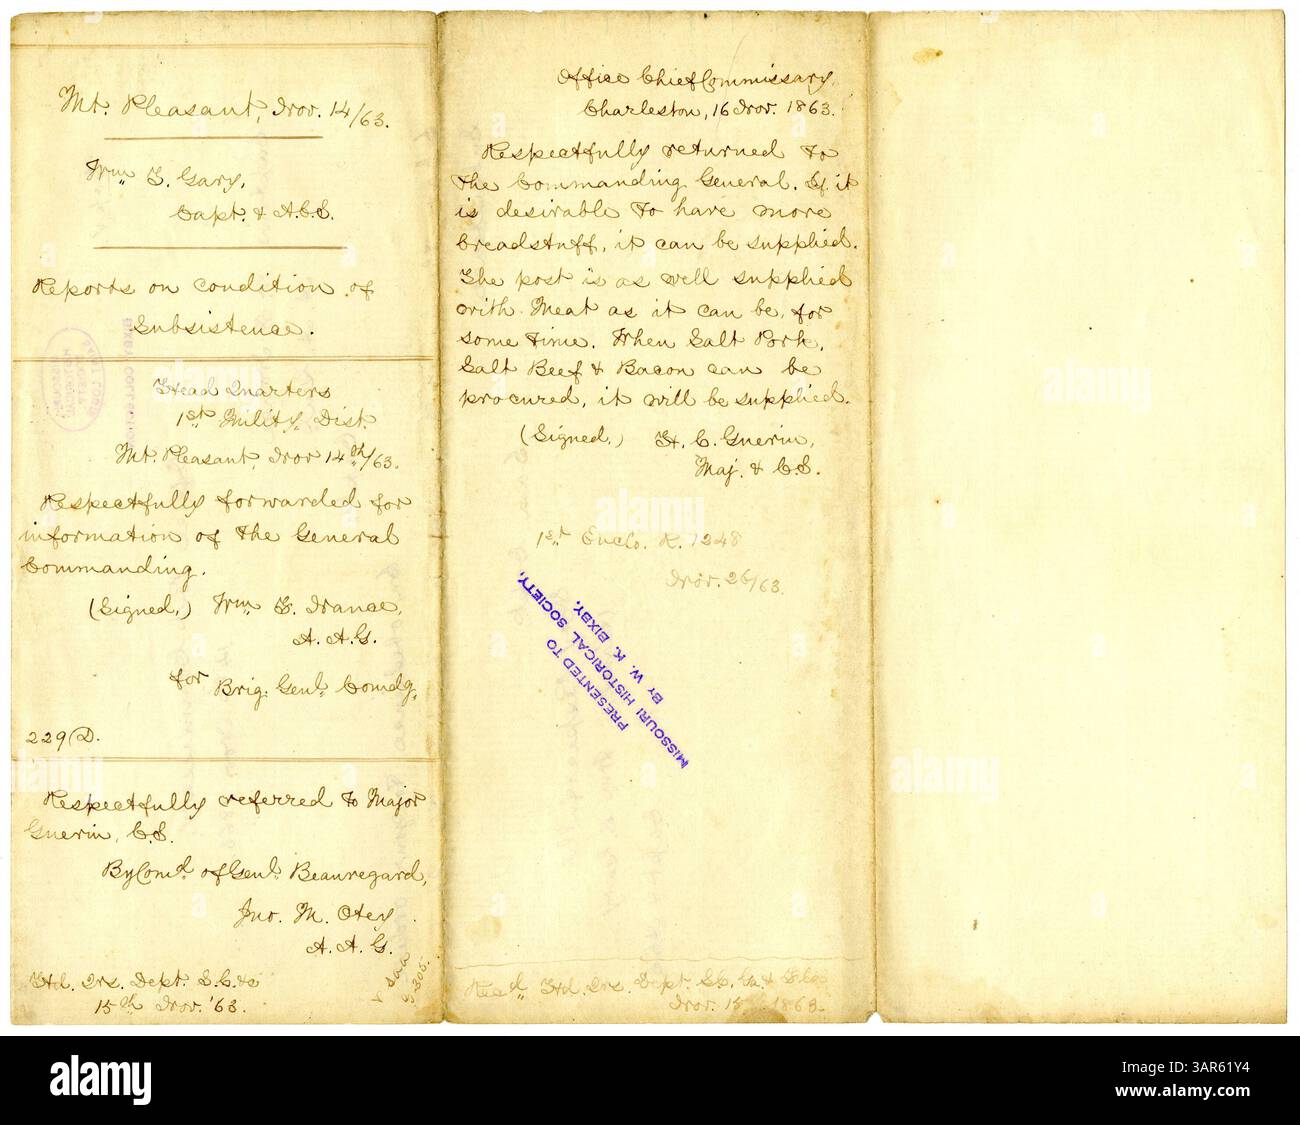 Mt. Pleasant, Nov. 14/63.
Wm. T. Gary,
Capt. & A.C.S.
Reports on condition of
Subsistence.
Head Quarters
1st Milit'y. Dist.
Mt. Pleasant, Nov 14th/63.
Respectfully forwarded for
information of the General
Commanding.
(Signed,) Wm. F. Nance,
A. A. G.
for Brig. Genl. Comdg.
229 D.
Respectfully referred to Major
Guerin, C.S.
By Comd. of Genl. Beauregard,
Jno. M. Otey
A. A. G.
Hd. Qrs. Dept. S.C. &c
15th Nov. '63.
Office Chief Commissary
Charleston, 16 Nov. 1863.
Respectfully returned to
the Commanding General. If it
is desirable to have more
breadstuff, it can be supplied.
The post is as well supplied
with Meat as it can be, for
some time. When Salt Pork,
Salt Beef & Bacon can be
procured, it will be supplied.
(Signed.) H. C. Guerin,
Maj. & C.S.
1st Enclo. R. 1248
Nov. 26/63.
PRESENTED TO
MISSOURI HISTORICAL SOCIETY,
BY W. K. BIXBY.
Recd. Hd. Qrs. Dept. S.C., Ga. & Fla.
Nov. 15 1863.
alamy
Image ID: 3AR61Y4
www.alamy.com